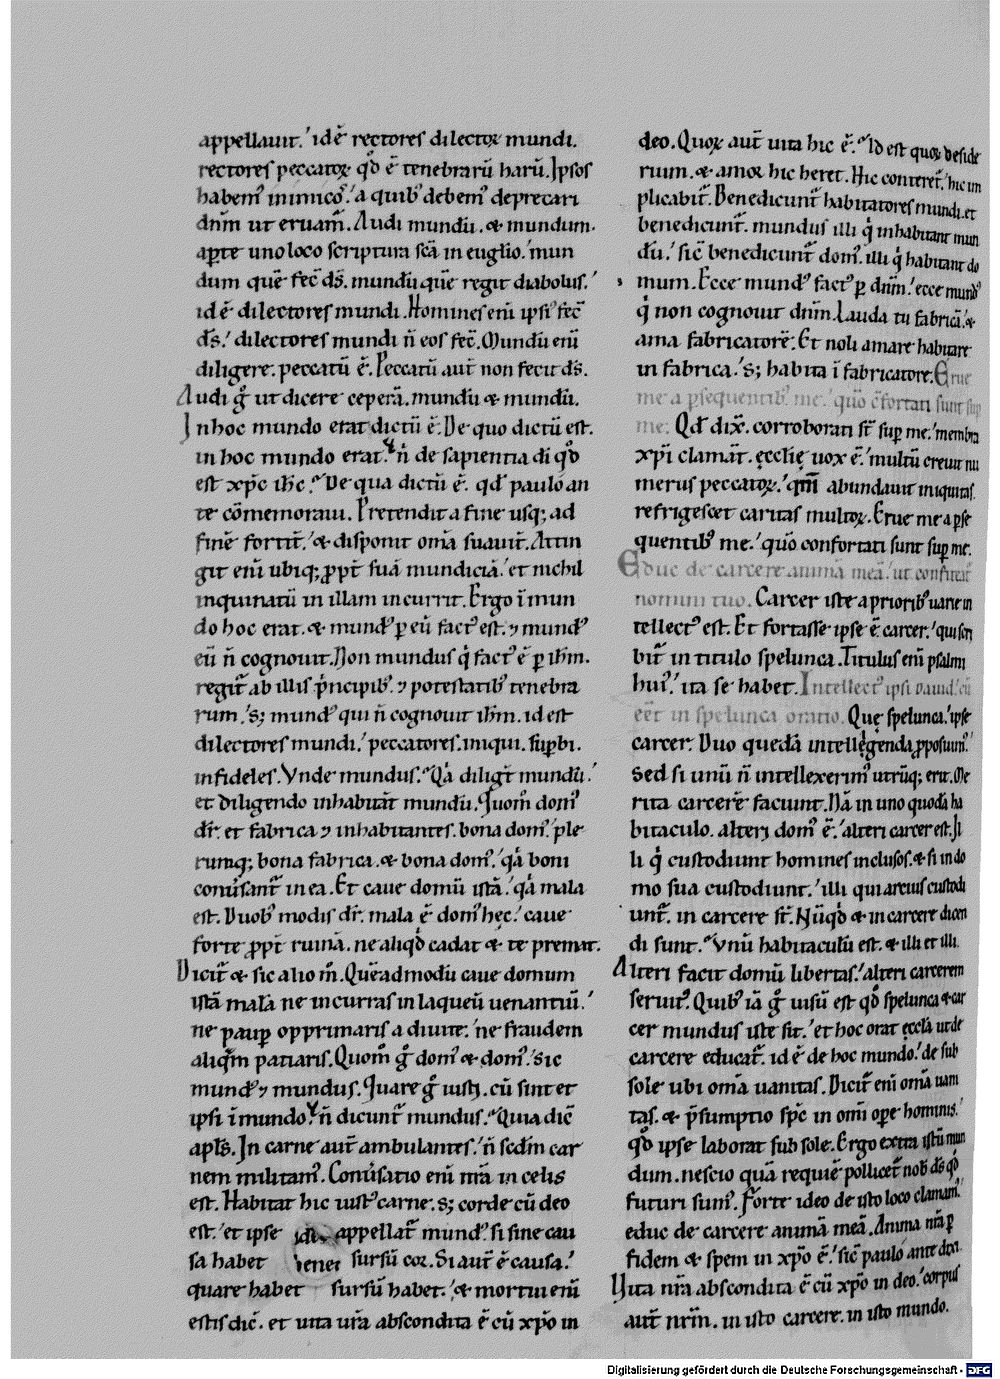 appellauit.' idē rectores dilectoꝝ mundi.
rectores peccatoꝝ qd̊ ē tenebrarū harū. Ipsos
habemꝰ inimicos.' a quibꝰ debemꝰ deprecari
dn̄m ut eruam̄. Audi mundū. & mundum.
apte uno loco scriptura sc̄a in euglio.' mun
dum quē fec̄ ds̄. mundū quē regit diabolus.'
id ē dilectores mundi. Homines eni ipsꝰ fec̄
ds̄.' dilectores mundi n̄ eos fec̄. Mundū eni
diligere. peccatū ē. Peccatū aut̄ non fecit ds̄.
Audi g̊ ut dicere ceperā. mundū & mundū.
In hoc mundo erat dictū ē. De quo dictū est.
in hoc mundo erat. n̄ de sapientia di qd̊
est xp̄c ih̄c. De qua dictū ē. qd̄ paulo an
te cōmemoraui. Pretendit a fine usq; ad
finē fortit̄.' & disponit om̄a suauit̄. Attin
git eni ubiq; ꝓpt̄ suā mundiciā.' et nichil
inquinatū in illam incurrit. Ergo ī mun
do hoc erat. & mundꝰ ꝑ eū factꝰ est. ⁊ mundꝰ
eū n̄ cognouit. Non mundus q̇ factꝰ ē ꝑ ih̄m.
regit̄ ab illis p̄ncipibꝰ. ⁊ potestatibꝰ tenebra
rum.' s; mundꝰ qui n̄ cognouit ih̄m. id est
dilectores mundi.' peccatores. iniqui. supbi.
infideles. Vnde mundus. Qa diligt̄ mundū.'
et diligendo inhabitāt mundū. Quom̄ domꝰ
dr̄. et fabrica ⁊ inhabitantes. bona domꝰ.' ple
rumq; bona fabrica. & bona domꝰ.' qa boni
conūsant̄ in ea. Et caue domū istā.' qa mala
est. Duobꝰ modis dr̄. mala ē domꝰ hęc.' caue
forte ꝓpt̄ ruinā. ne aliqd̊ cadat & te premat.
Dicit̄ & sic alio m̄. Quēadmodū caue domum
istā malā ne incurras in laqueū uenantiū.'
ne paup̱ opprimaris a diuite.' ne fraudem
aliqm̄ patiaris. Quom̄ g̊ domꝰ & domꝰ.' sic
mundꝰ ⁊ mundus. Quare g̊ iusti. cū sint et
ipsi ī mundo. n̄ dicunt̄ mundus. Quia dic̄
apl̄s. In carne aut̄ ambulantes.' n̄ scd̄m car
nem militamꝰ. Conūsatio eni nr̄a in celis
est. Habitat hic iustꝰ carne. s; corde cū deo
est.' et ipse appellat̄ mundꝰ. si sine cau
sa habet sursū cor. Si aut̄ ē causa.'
quare habet sursū habet.' & mortui eni
estis dic̄. et uita ur̄a abscondita ē cū xp̄o in
deo. Quoꝝ aut̄ uita hic ē. Id est quoꝝ deside
rium. & amor hic heret. Hic conteret̄.' hic im
plicabit̄. Benedicunt̄ habitatores mundi. et
benedicunt̄. mundus illi q̇ inhabitant mun
dū.' sic̄ benedicunt̄ domꝰ. illi q̇ habitant do
mum. Ecce mundꝰ factꝰ ꝑ dn̄m.' ecce mundꝰ
q̇ non cognouit dn̄m. Lauda tu fabricā.' &
ama fabricatorē. Et noli amare habitare
in fabrica.' s; habita ī fabricatore. Erue
me a ꝑsequentibꝰ me.' quō cōfortati sunt sup
me. Qd̄ dix̄. corroborati st̄ sup me.' membra
xp̄i clamāt. ęcclię uox ē.' multū creuit nu
merus peccatoꝝ.' qm̄ abundauit iniquitas.
refrigescet caritas multoꝝ. Erue me a pse
quentibꝰ me.' quō confortati sunt sup me.
Educ de carcere animā meā.' ut confiteat̄
nomini tuo. Carcer iste a prioribꝰ uarie in
tellectꝰ est. Et fortasse ipse ē carcer.' qui scri
bit̄ in titulo spelunca. Titulus eni psalmi
huiꝰ.' ita se habet. Intellectꝰ ipsi dauid.' cū
eēt in spelunca oratio. Quę spelunca.' ipse
carcer. Duo quedā intellegenda ꝓposuimꝰ.'
Sed si unū n̄ intellexerimꝰ utrūq; erit. Me
rita carcerē faciunt. Nā in uno quodā ha
bitaculo. alteri domꝰ ē.' alteri carcer est. Il
li q̇ custodiunt homines inclusos. & si in do
mo sua custodiunt.' illi qui arcius custodi
unt̄. in carcere st̄. Nūqd̊ & in carcere dicen
di sunt. Vnū habitaculū est. & illi et illi.
Alteri facit domū libertas.' alteri carcerem
seruitꝰ. Quibꝰ iā g̊ uisū est qd̊ spelunca & car
cer mundus iste sit.' et hoc orat ęccl̄a ut de
carcere educat̄. id ē de hoc mundo.' de sub
sole ubi om̄a uanitas. Dicit̄ eni om̄a uani
tas. & p̄sumptio sp̄c in om̄i ope hominis.'
qd̊ ipse laborat sub sole. Ergo extra istū mun
dum. nescio quā requiē pollicet̄ nob̄ ds̄ qd̊
futuri sumꝰ. Forte ideo de isto loco clamamꝰ.'
educ de carcere animā meā. Anima nr̄a p̱
fidem & spem in xp̄o ē.' sic̄ paulo ante dixi.
Vita nr̄a abscondita ē cū xp̄o in deo.' corpus
aut̄ nr̄m. in isto carcere. in isto mundo.
Digitalisierung gefördert durch die Deutsche Forschungsgemeinschaft - DFG